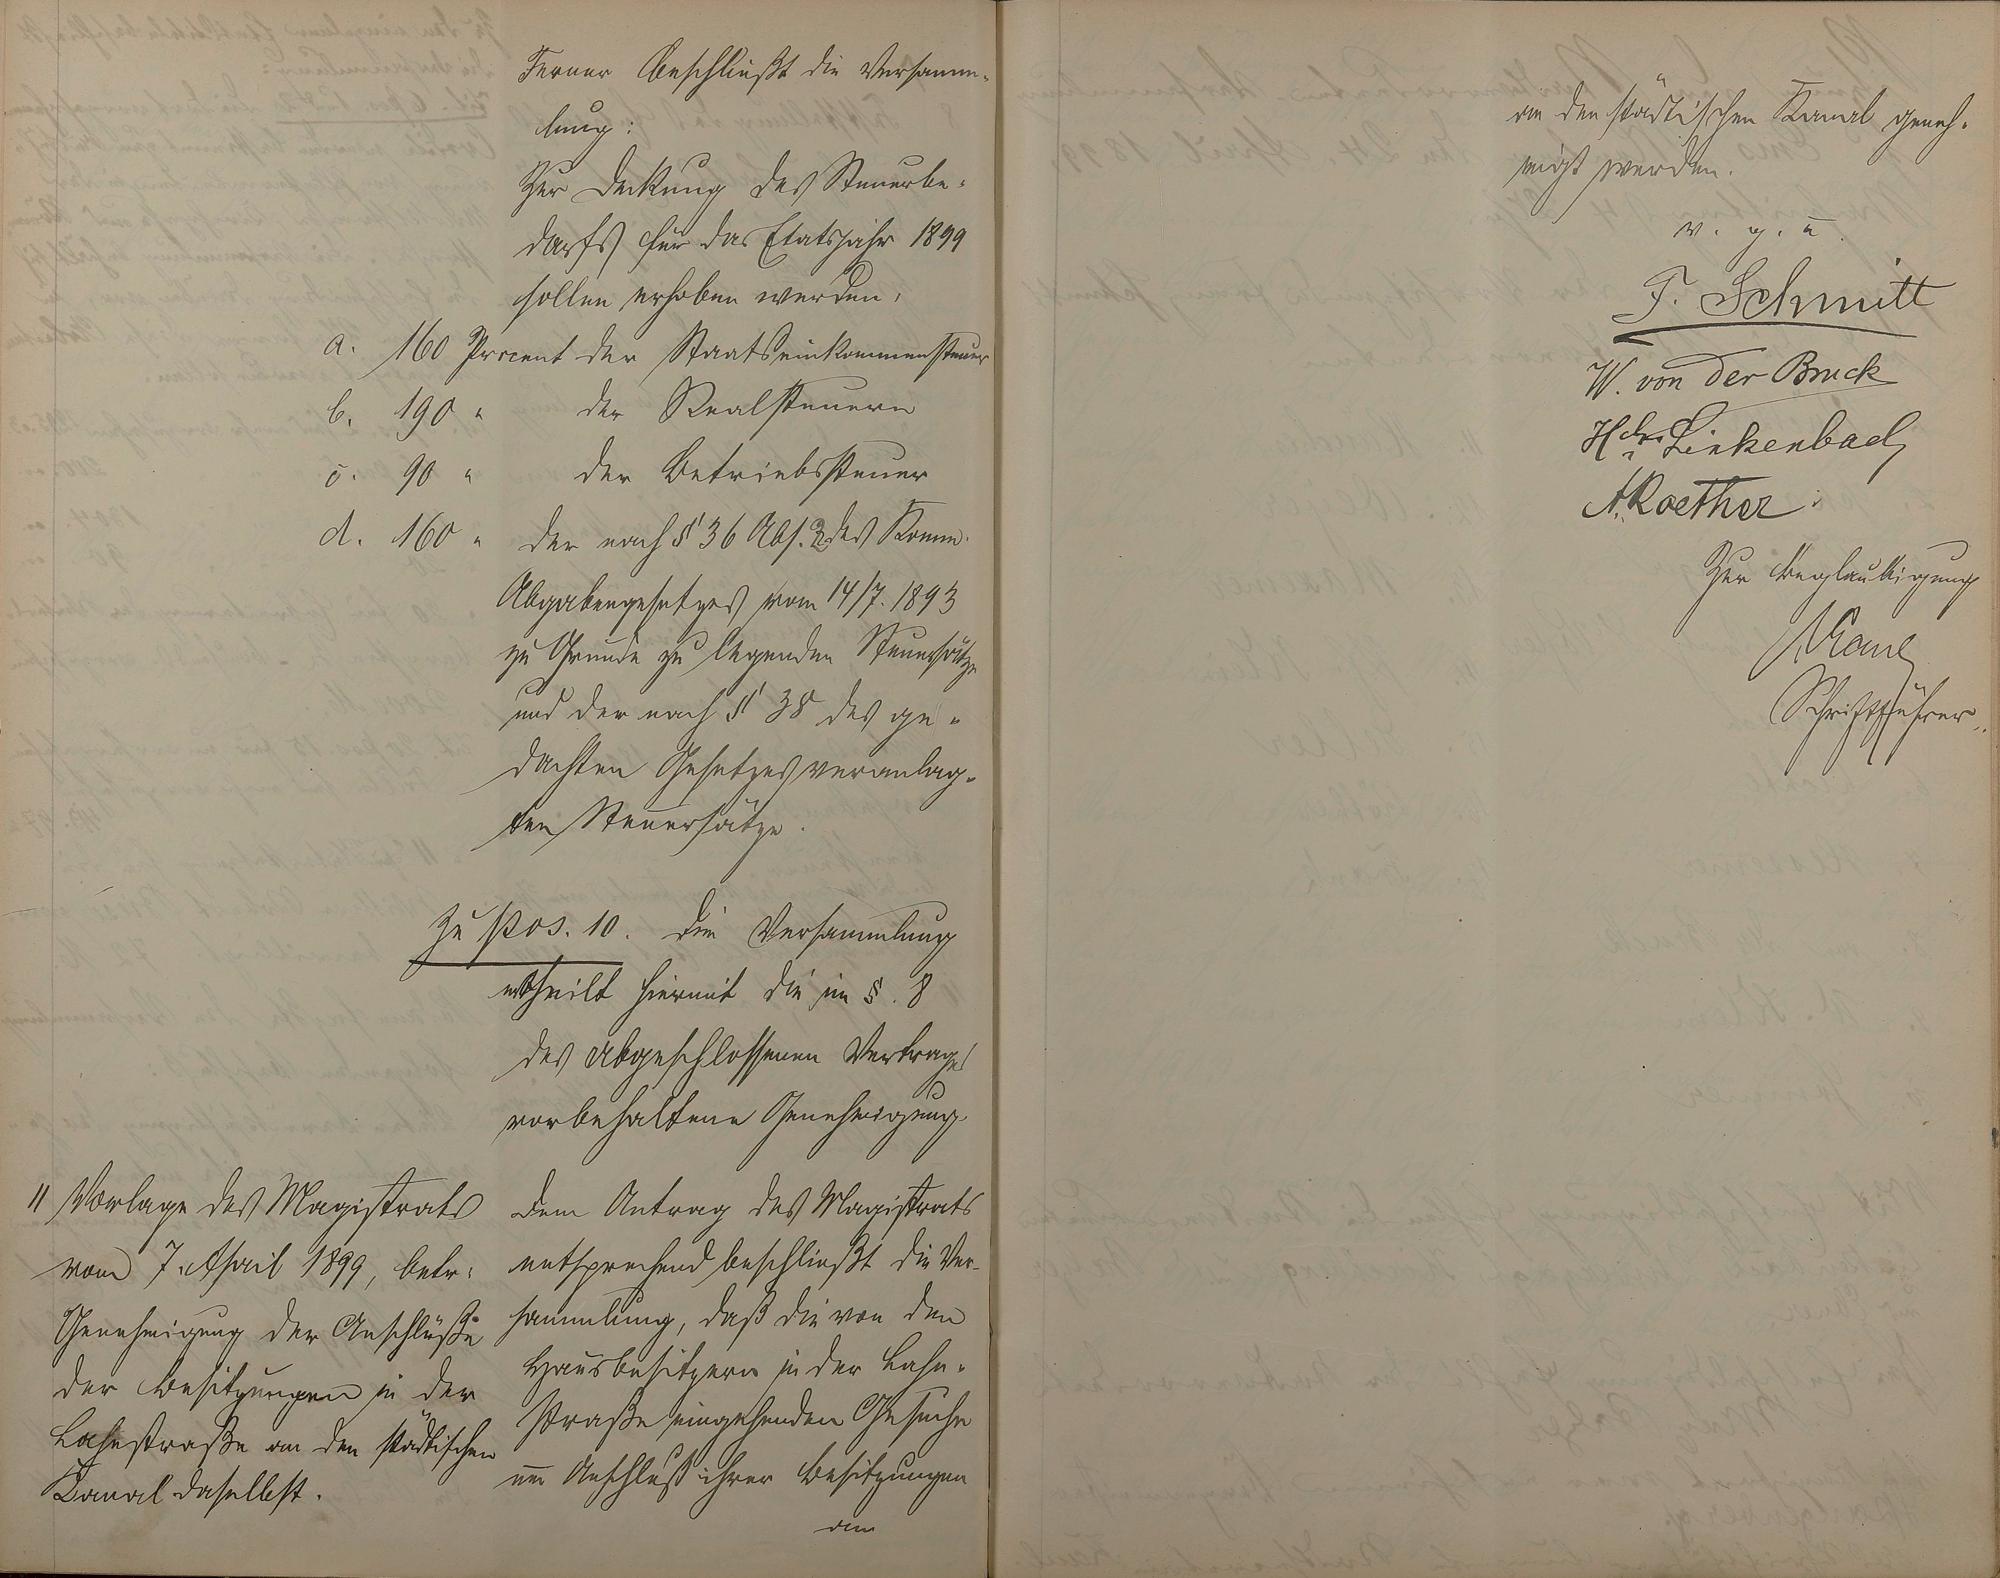 Ferner beschließt die Versamm-
lung:
Zur Deckung des Steuerbe-
darfs für das Etatsjahr 1899
sollen erhoben werden,
a. 160 Procent der Staatseinkommensteuer
b. 190 " der Realsteuern
c. 90 " der Betriebssteuer
d. 160 " der nach § 36 Abs. 2 des Komm.
Abgabengesetzes vom 14/7. 1893
zu Grunde zu legenden Steuersätze
und der nach § 38 des ge-
dachten Gesetzes veranlag-
ten Steuersätze.
Zu Pos. 10. Die Versammlung
ertheilt hiermit die im §. 8
des abgeschlossenen Vertrages
vorbehaltene Genehmigung.
11 Vorlage des Magistrats
vom 7. April 1899, betr.
Genehmigung der Anschlüße
der Besitzungen in der
Lahnstraße an den städtischen
Kanal daselbst.
Dem Antrag des Magistrats
entsprechend beschließt die Ver-
sammlung, daß die von den
Hausbesitzern in der Lahn-
straße eingehenden Gesuche
um Anschluß ihrer Besitzungen
an
an den städtischen Kanal geneh-
migt werden.
v. g. u.
F. Schmitt
W. von der Bruck
Hch. Linkenbach
A. Roether.
Zur Beglaubigung
Schriftführer.